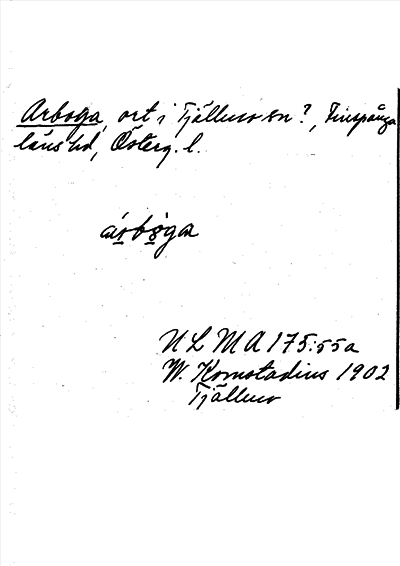 Arboga, ort i Tjällmo sn?, Finspånga
läns hd, Österg. l.
árbò̤ga
NLMA 175:55a
W. Komstadius 1902
Tjällmo